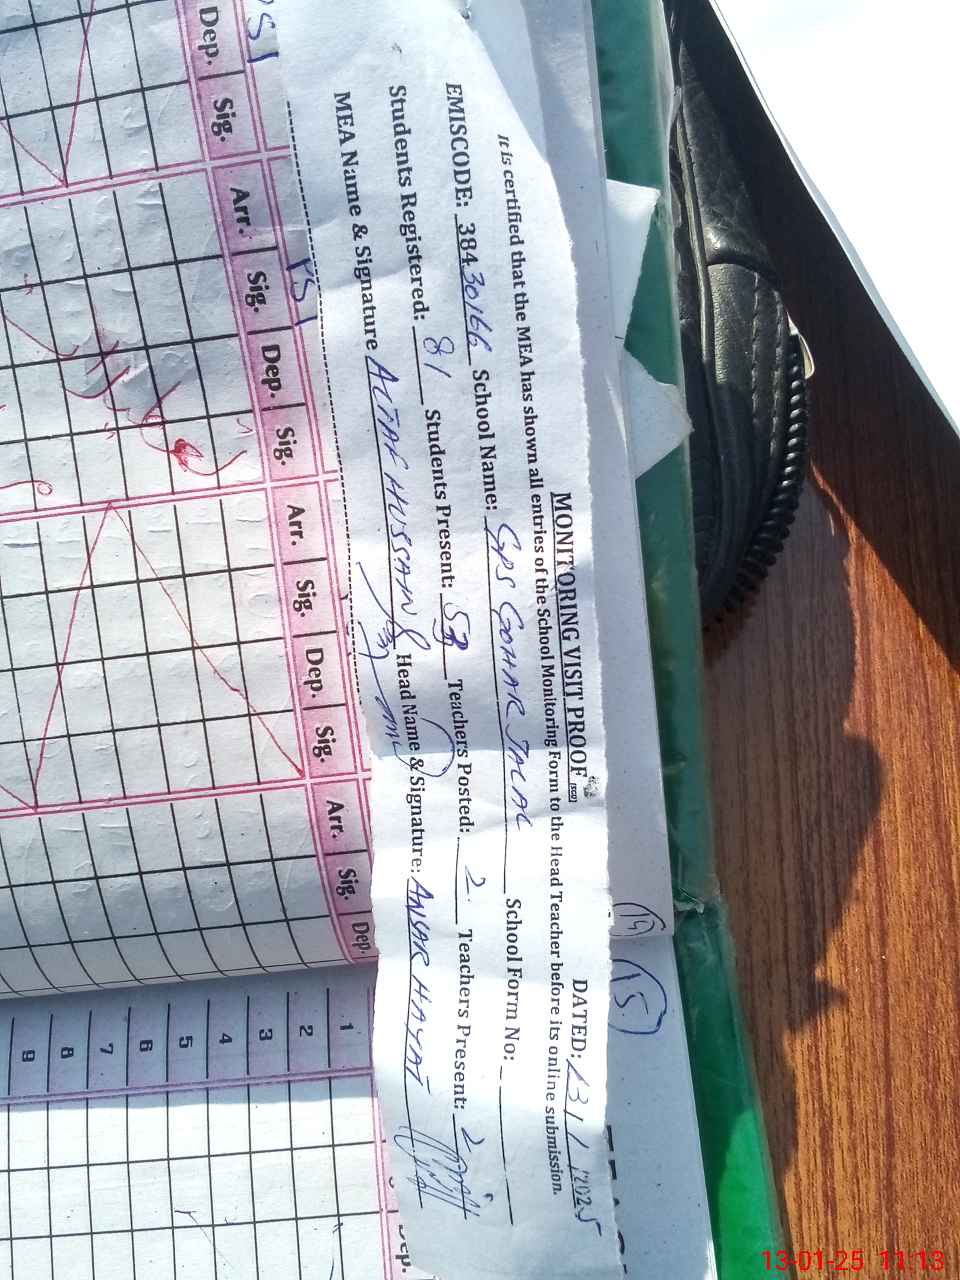 MONITORING VISIT PROOF DATED: 13/1/2025
It is certified that the MEA has shown all entries of the School Monitoring Form to the Head Teacher before its online submission.
EMISCODE: 38430166 School Name: GPS GOHAR JALAL School Form No:
Students Registered: 81 Students Present: Teachers Posted: 2 Teachers Present: 2
MEA Name & Signature ALTAF HUSSAIN Head Name & Signature: ANSAR HAYAT
14
15
Dep. Sig. Arr. Sig. Dep. Sig. Arr. Sig. Dep. Sig. Arr. Sig. Dep.
Dep.
1
2
3
4
5
6
7
8
9
13-01-25 11:13